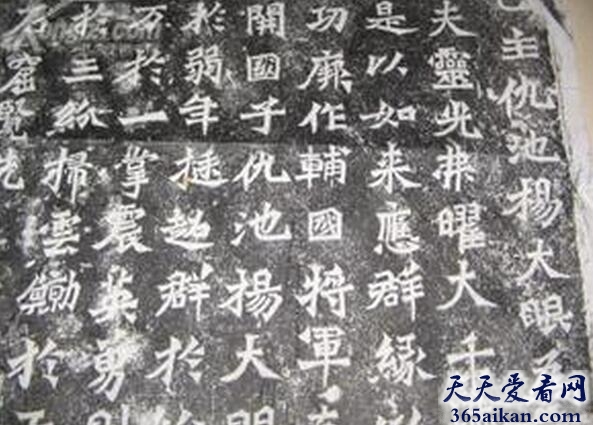 主仇池楊大眼
夫靈光弗曜大千
是以如来應群緣
功厥作輔國将軍
開國子仇池楊大眼
於弱年挺超群於
万於一掌震英勇則
於三紛掃雲於
石窟覽先
天天爱看网
365aikan.com